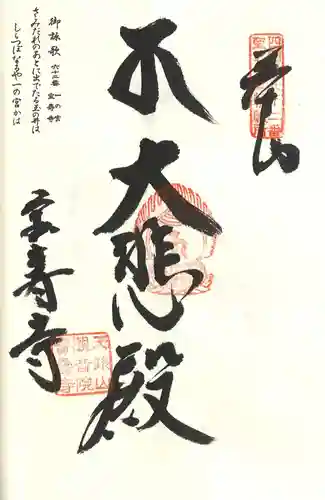 奉拝
大悲殿
御詠歌 六十二番 一の宮
宝寿寺
さみだれのあとに出でたる玉の井は
しらつぼなるや一の宮かは
宝寿寺
天養山
観音院
宝寿寺